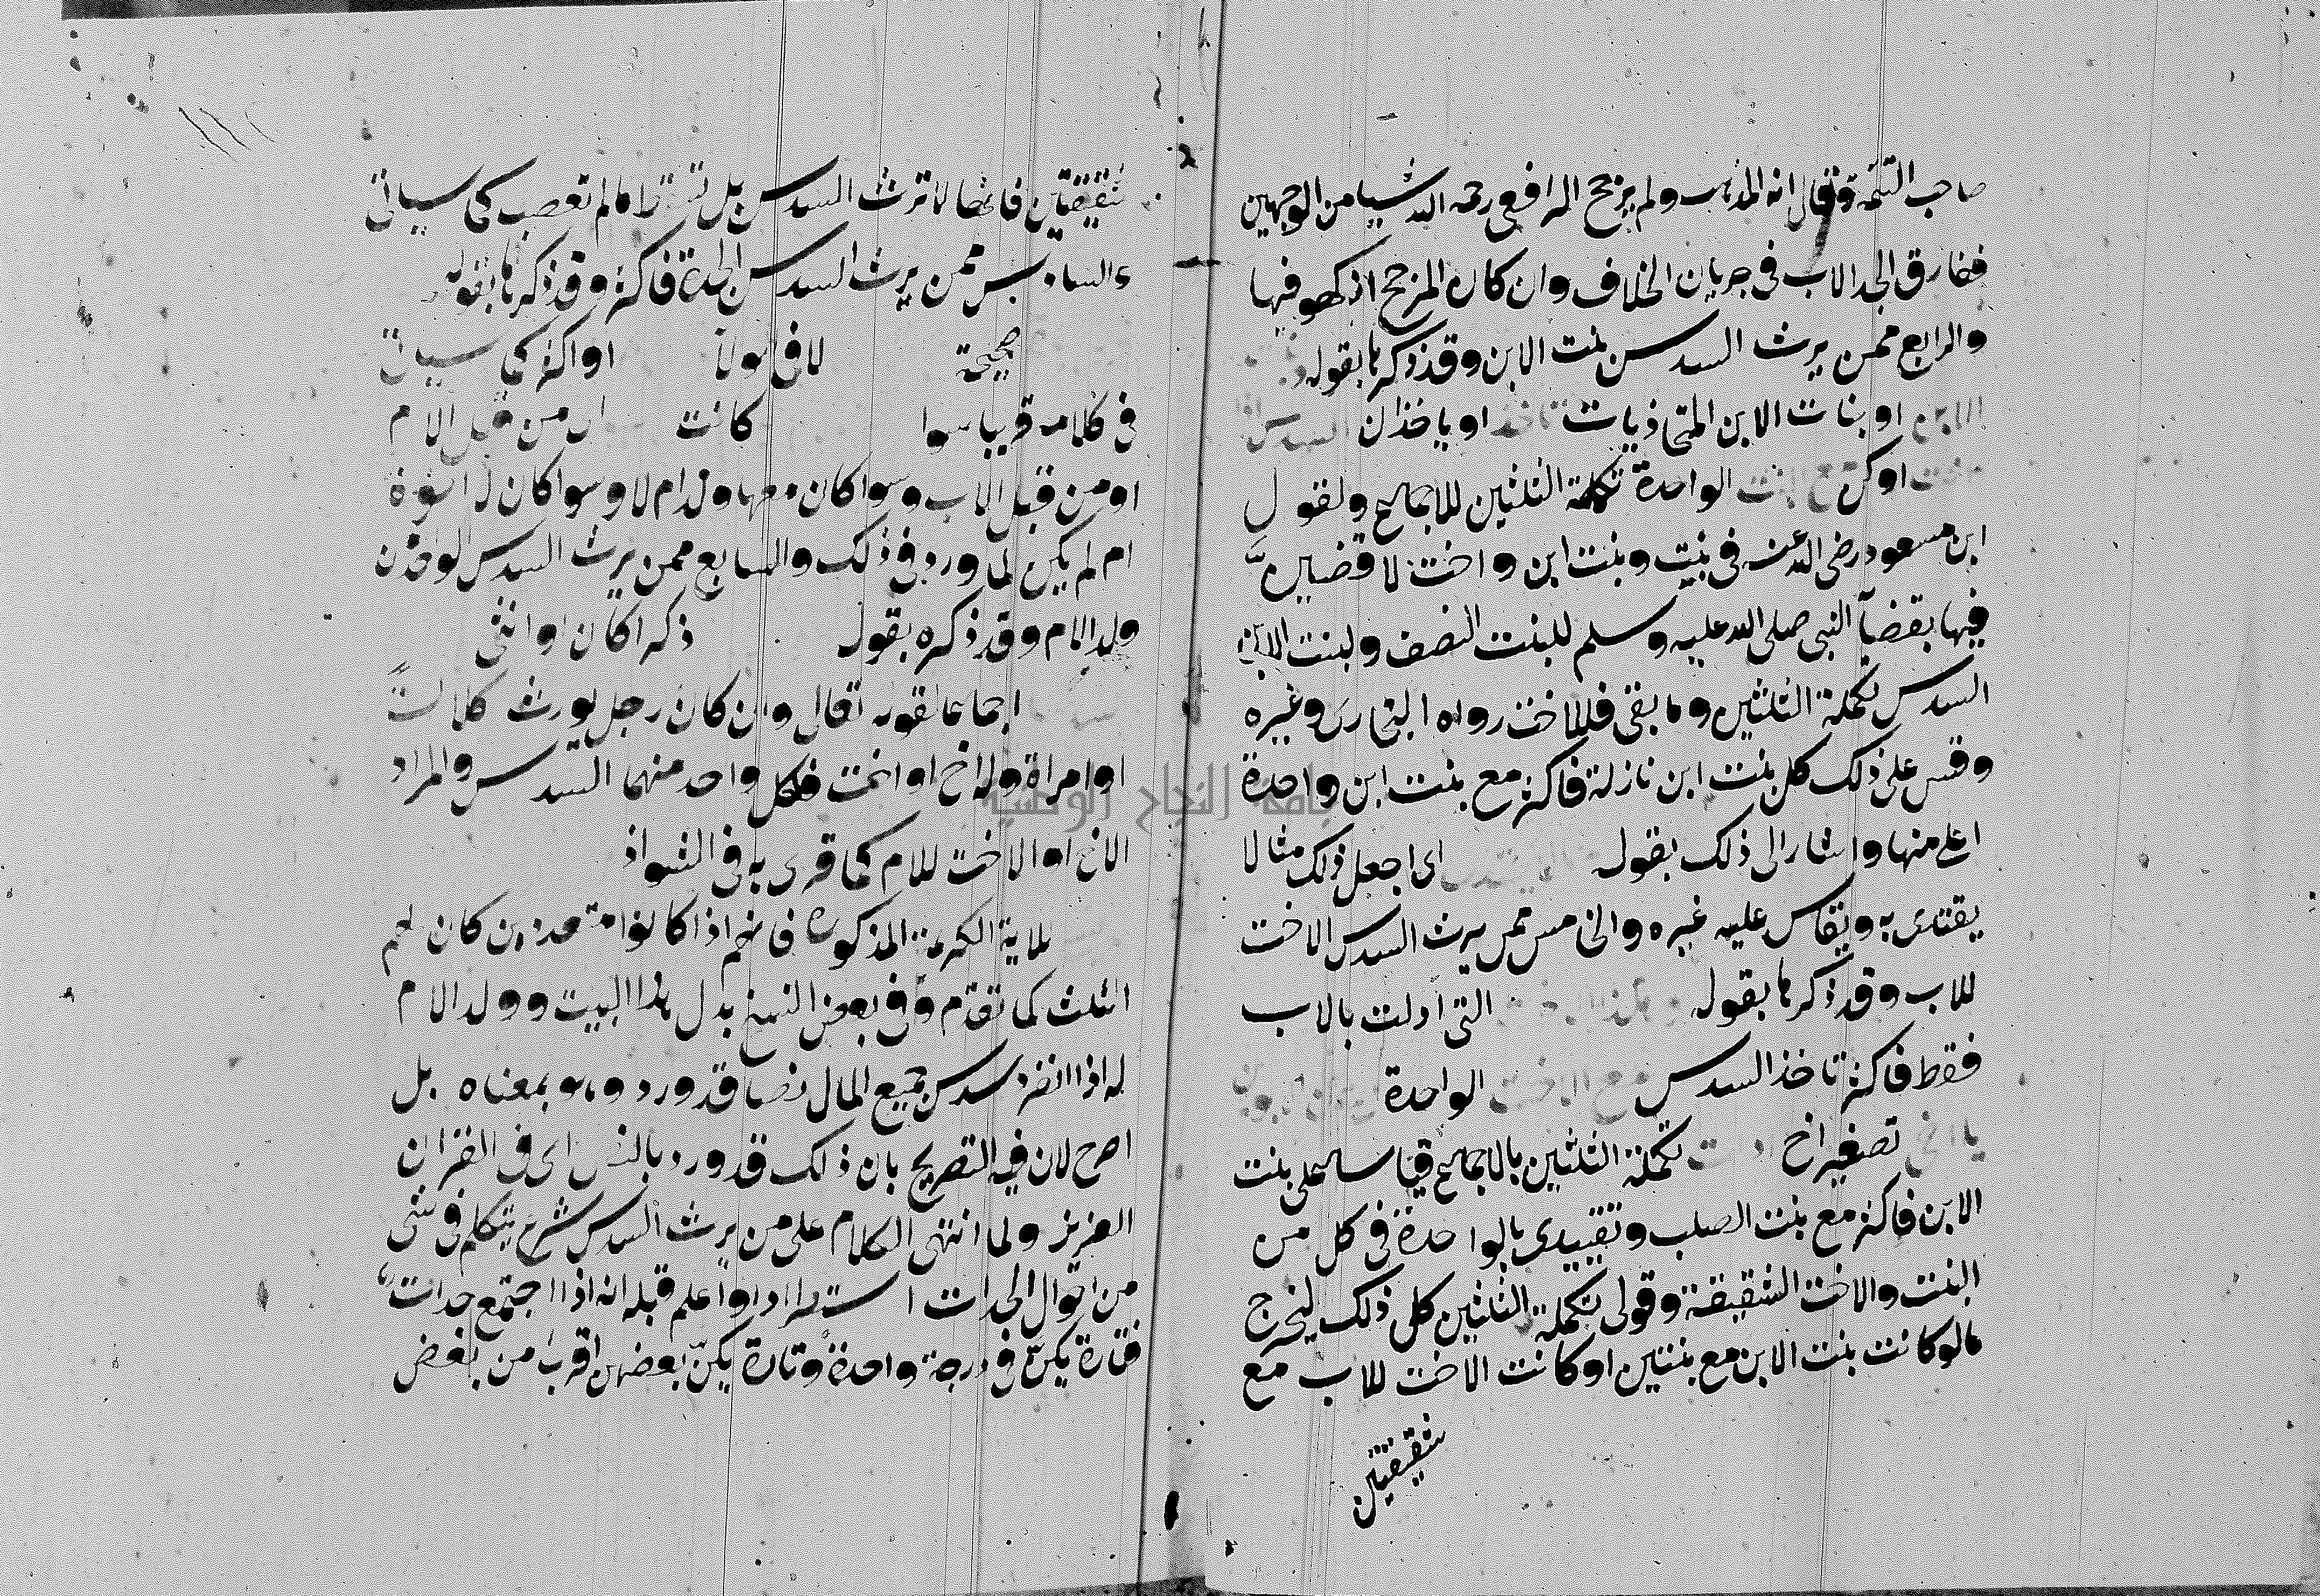 صاحب التتمة وقال انه المذهب ولم يرجح الرافعي رحمه الله شيا من الوجهين
ففارق الجد الاب في جريان الخلاف وان كان المرجح انه كهو فيها
والرابع ممن يرث السدس بنت الابن وقد ذكرها بقوله
الابن او بنات الابن المتحاذيات تاخذ او ياخذان السدس اذا
اوكن مع البنت الواحدة تكملة الثلثين للاجماع ولقول
ابن مسعود رضي الله عنه في بنت وبنت ابن واخت لاقضين
فيها بقضآ النبي صلى الله عليه وسلم للبنت النصف ولبنت الابن
السدس تكملة الثلثين وما بقى فللاخت رواه البخارى وغيره
وقس على ذلك كل بنت ابن نازلة فاكثر مع بنت ابن واحدة
اعلى منها واشار الى ذلك بقوله اى اجعل ذلك مثالا
يقتدى به ويقاس عليه غيره والخامس ممن يرث السدس الاخت
للاب وقد ذكرها بقوله التى ادلت بالاب
فقط فاكثر تاخذ السدس مع الاخت الواحدة
يا اخي تصغير اخ تكملة الثلثين بالاجماع قياسا على بنت
الابن فاكثر مع بنت الصلب وتقييدى بالواحدة في كل من
البنت والاخت الشقيقة وقولى تكملة الثلثين كل ذلك ليخرج
مالو كانت بنت الابن مع بنتين او كانت الاخت للاب مع
شقيقتين
شقيقتين فانها لا ترث السدس بل مالم تعصب كما سياتى
والسادس ممن يرث السدس الجدة فاكثر وقد ذكرها بقوله
صحيحة او اكثر كما سياتى
في كلامه قريبا سوا كانت من قبل الام
او من قبل الاب وسوا كان معها ولد ام لا وسوا كان له اخوة
ام لم يكن لما ورد في ذلك والسابع ممن يرث السدس الواحد من
ولد الام وقد ذكره بقوله ذكرا كان او انثى
اجماعا لقوله تعالى وان كان رجل يورث كلالة
او امراة وله اخ او اخت فلكل واحد منهما السدس والمراد
الاخ او الاخت للام كما قرى به في الشواذ
للاية الكريمة المذكورة فانهم اذا كانوا متعددين كان لهم
الثلث كما تقدم وفي بعض النسخ بدل هذا البيت وولد الام
له اذا انفرد سدس جميع المال نصا قد ورد وهو بمعناه بل
اصرح لان فيه التصريح بان ذلك قد ورد بالنص اى في القران
العزيز ولما انتهى الكلام على من يرث السدس شرع يتكلم في شى
من احوال الجدات استطرادا واعلم قبله انه اذا اجتمع جدات
فتارة يكن في درجة واحدة وتارة يكن بعضهن اقرب من بعض
جامعة النجاح الوطنية